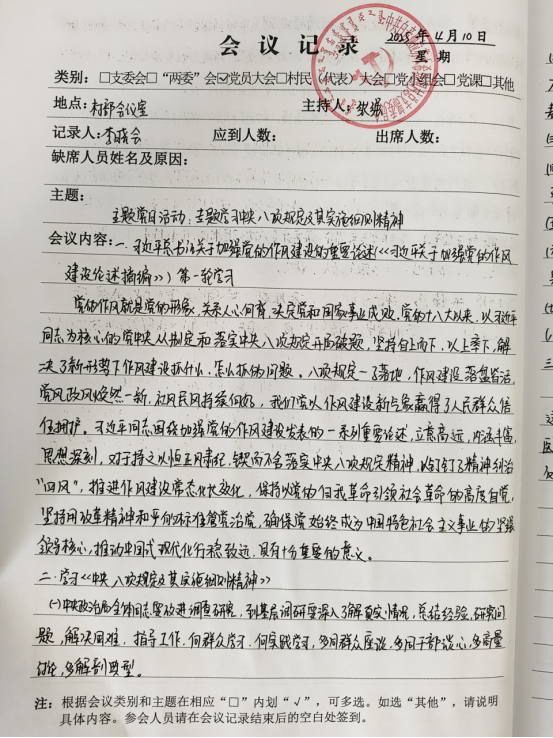 会议记录
2025年4月10日
星期
类别：□支委会□“两委”会☑党员大会□村民（代表）大会□党小组会□党课□其他
地点：村部会议室 主持人：张
记录人：李晓会 应到人数： 出席人数：
缺席人员姓名及原因：
主题：
主题党日活动：主题学习中央八项规定及其实施细则精神
会议内容：一. 习近平总书记关于加强党的作风建设的重要论述《《习近平关于加强党的作风
建设论述摘编》》第一轮学习
党的作风就是党的形象，关系人心向背，决定党和国家事业成败，党的十八大以来，以习近平
同志为核心的党中央从制定和落实中央八项规定开局破题，坚持自上而下，以上率下，解
决了新形势下作风建设抓什么，怎么抓的问题。八项规定一子落地，作风建设满盘皆活，
党风政风焕然一新，社风民风持续向好，我们党以作风建设新气象赢得了人民群众信
任拥护。习近平同志围绕加强党的作风建设发表的一系列重要论述，立意高远，内涵丰富，
思想深刻，对于持之以恒正风肃纪，锲而不舍落实中央八项规定精神，以钉钉子精神纠治
“四风”，推进作风建设常态化长效化，保持以党的自我革命引领社会革命的高度自觉，
坚持用改革精神和严的标准管党治党，确保党始终成为中国特色社会主义事业的坚强
领导核心，推动中国式现代化行稳致远，具有十分重要的意义。
二. 学习《《中央八项规定及其实施细则精神》》
(一)中央政治局全体同志要改进调查研究，到基层调研要深入了解真实情况，总结经验，研究问
题，解决困难，指导工作，向群众学习，向实践学习，多同群众座谈，多同干部谈心，多商量
讨论，多解剖典型。
注：根据会议类别和主题在相应“□”内划“√”，可多选。如选“其他”，请说明
具体内容。参会人员请在会议记录结束后的空白处签到。